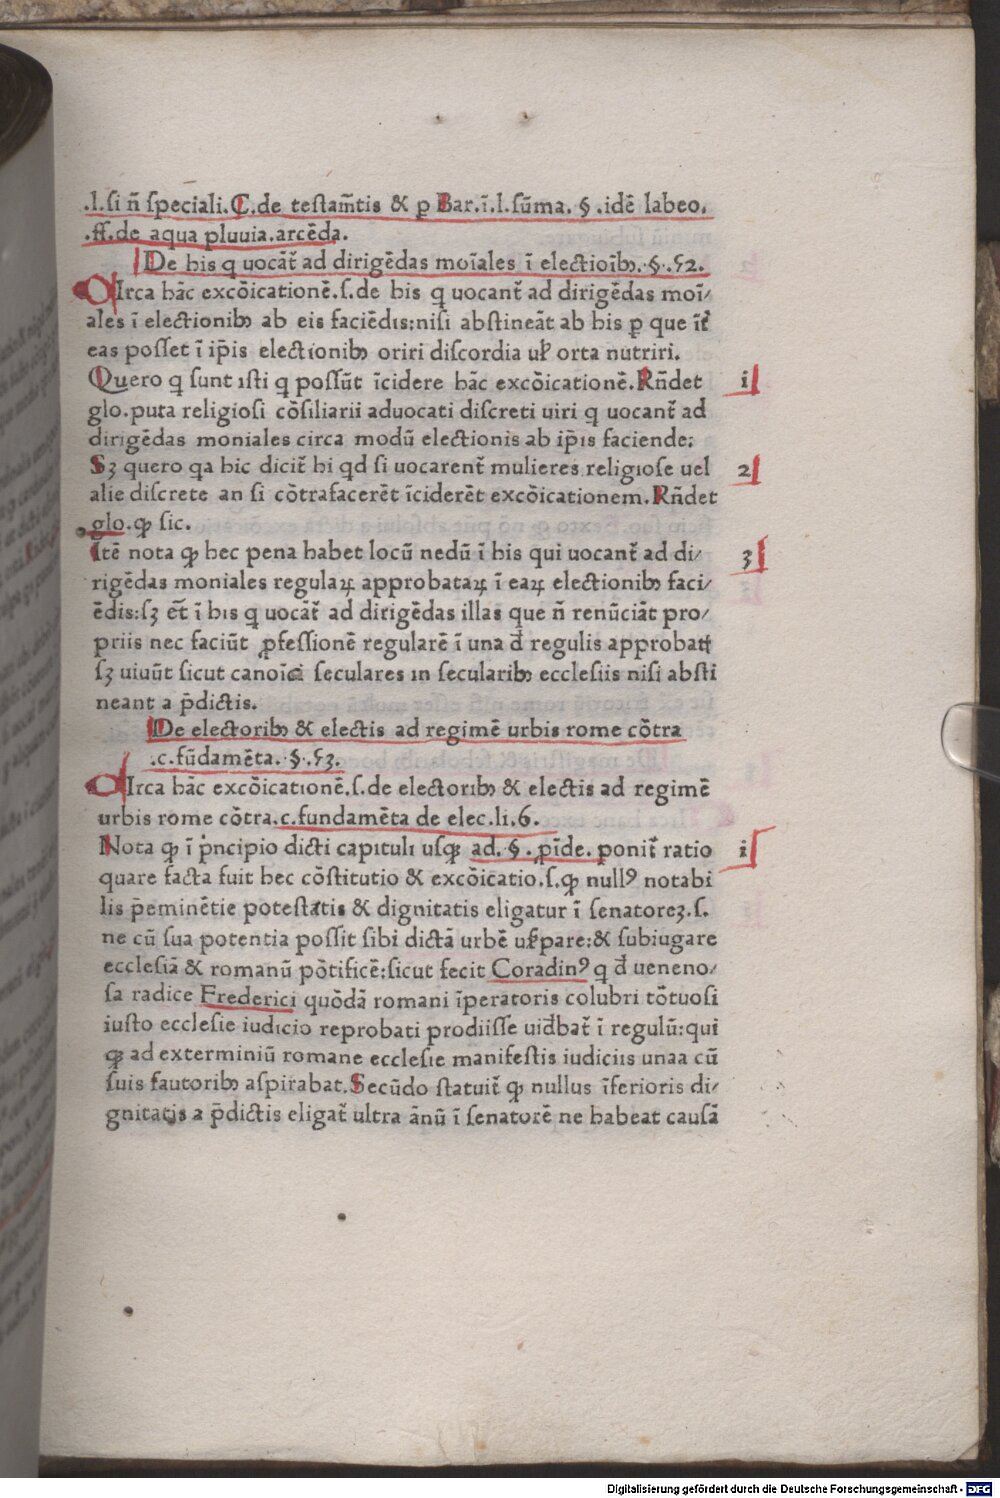 .l.si n̄ speciali.C.de testam̄tis & p Bar.ī.l.sūma. § .idē labeo.
.ff.de aqua pluuia.arcēda.
De his q uocāt ad dirigēdas moīales ī electioīb9.§.52.
CIrca hāc excōicationē.s.de his q uocant̄ ad dirigēdas moī/
ales ī electionib9 ab eis faciēdis:nisi abstineāt ab his ꝑ que īt̄
eas posset ī ip̄is electionib9 oriri discordia ul̄ orta nutriri.
Quero q sunt isti q possūt īcidere hāc excōicationē.Rn̄det
i
glo.puta religiosi cōsiliarii aduocati discreti uiri q uocant̄ ad
dirigēdas moniales circa modū electionis ab ip̄is faciende:
Sꝫ quero qa hic dicit̄ hi qd si uocarent̄ mulieres religiose uel
2
alie discrete an si cōtrafacerēt īciderēt excōicationem.Rn̄det
glo.ꝙ sic.
Itē nota ꝙ hec pena habet locū nedū ī his qui uocant̄ ad di/
3
rigēdas moniales regulaꝝ approbataꝝ ī eaꝝ electionib9 faci/
ēdis:sꝫ et̄ ī his q uocāt̄ ad dirigēdas illas que n̄ renūciāt pro/
priis nec faciūt ꝓfessionē regularē ī una d̄ regulis approbatī
sꝫ uiuūt sicut canoīcī seculares in secularib9 ecclesiis nisi absti
neant a p̄dictis.
De electorib9 & electis ad regimē urbis rome cōtra
.c.fūdamēta.§.53.
CIrca hāc excōicationē.s.de electorib9 & electis ad regimē
urbis rome cōtra.c.fundamēta de elec.li.6.
Nota ꝙ ī pīncipio dicti capituli usqꝫ ad.§.ꝓīde. ponit̄ ratio
i
quare facta fuit hec cōstitutio & excōicatio.s.ꝙ nullꝰ notabi
lis p̄eminētie potestatis & dignitatis eligatur ī senatoreꝫ.s.
ne cū sua potentia possit sibi dictā urbē usr̄pare:& subiugare
ecclesiā & romanū pōtificē:sicut fecit Coradinꝰ q d̄ ueneno/
sa radice Frederici quōdā romani īperatoris colubri tōtuosi
iusto ecclesie iudicio reprobati prodiisse uid̄bat̄ ī regulū:qui
qꝫ ad exterminiū romane ecclesie manifestis iudiciis unaa cū
suis fautorib9 aspirabat.Secūdo statuit̄ ꝙ nullus īferioris di/
gnitatis a p̄dictis eligat̄ ultra ānū ī senatorē ne habeat causā
Digitalisierung gefördert durch die Deutsche Forschungsgemeinschaft - DFG